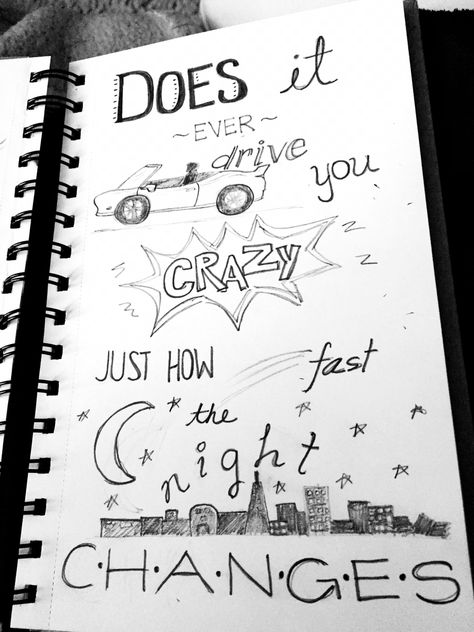 DOES it
~EVER~
drive you
CRAZY
JUST HOW fast
the
night
C·H·A·N·G·E·S